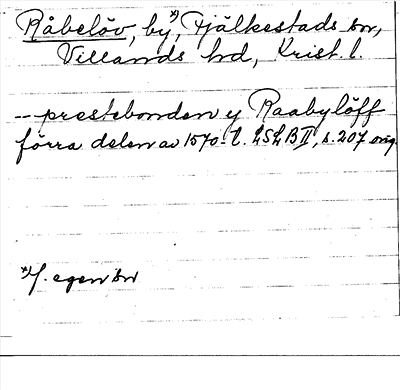 Råbelöv, by x), Fjälkestads sn,
Villands hd, Krist. l.
-- prestebonden y Raabylöff
förra delen av 1570-t. LSLB II, s. 207 orig.
x) f. egen sn